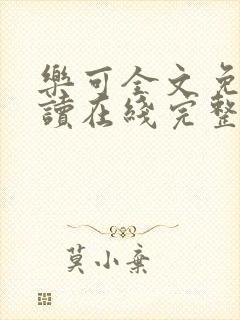 樂可全文免
讀在綫完整
莫小棄